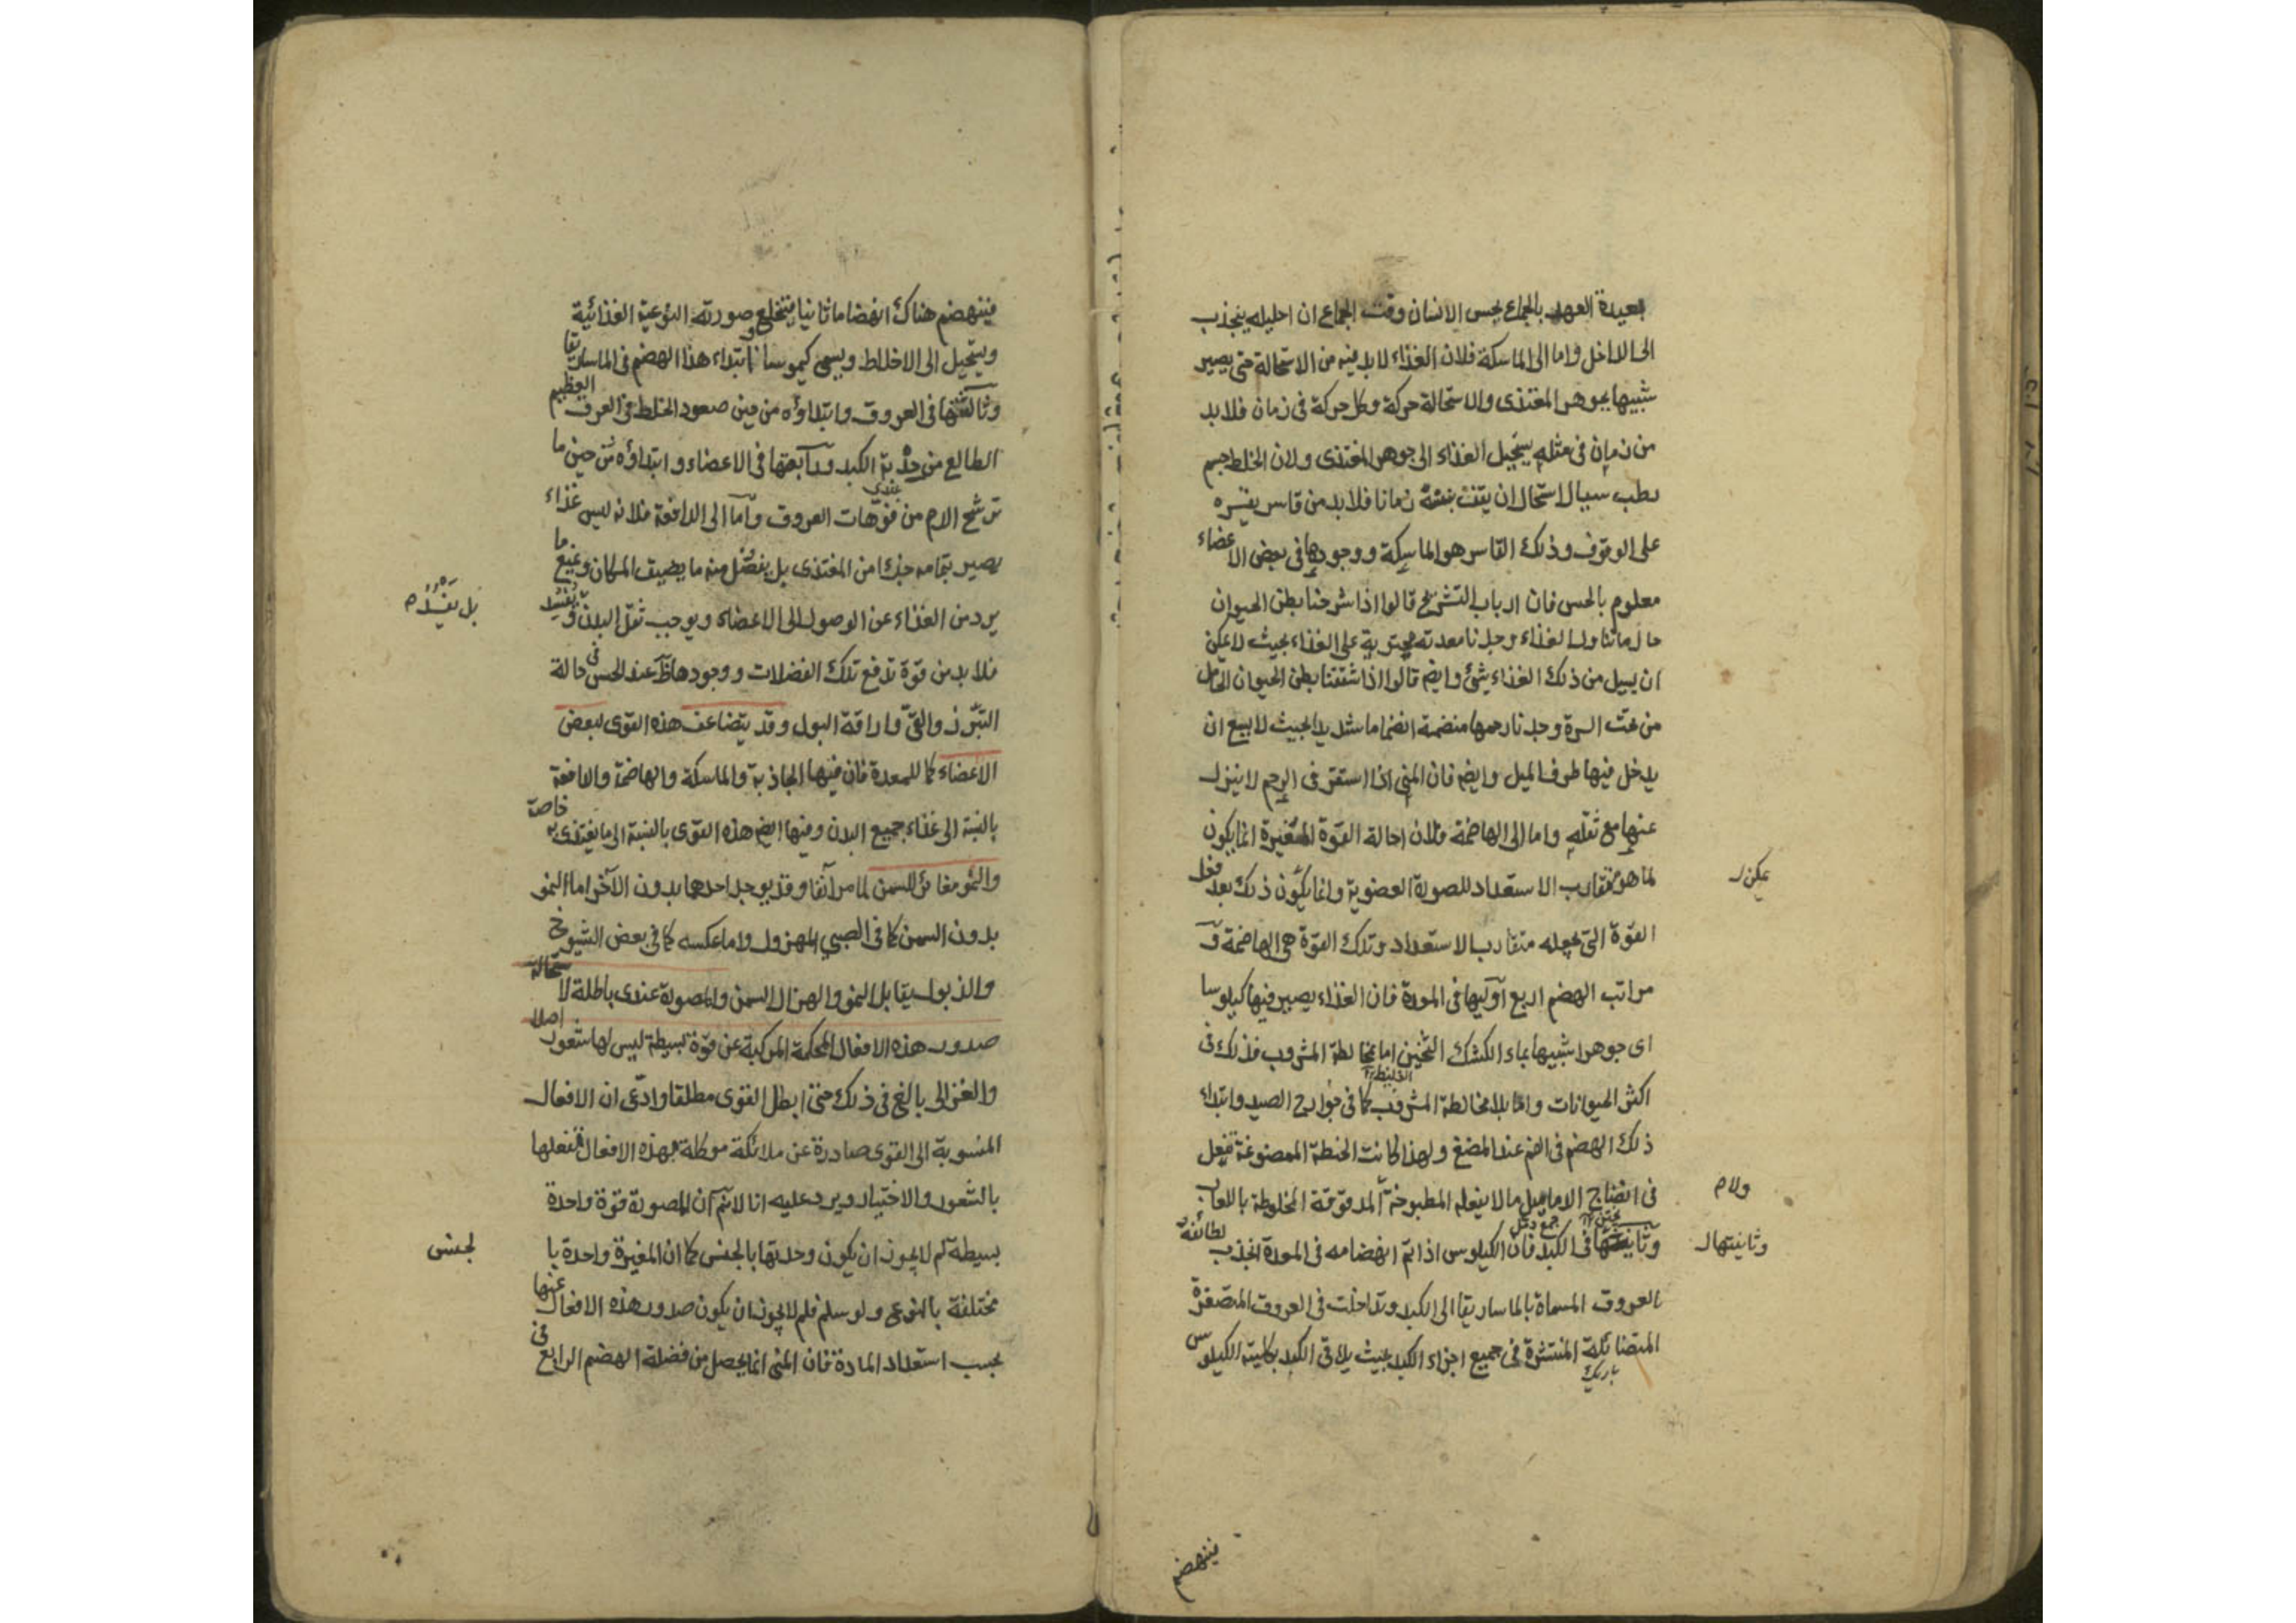 بعيدة العهد بالجماع يحس الانسان وقت الجماع ان احليله ينجذب
الى الداخل واما الى الماسكة فلان الغذاء لا بد فيه من الاستحالة حتى يصير
شبيها بجوهر المغتذى والاستحالة حركة وكل حركة فى زمان فلا بد
من زمان فى مثله يستحيل الغذاء الى جوهر المغتذى ولان الخلط جسم
رطب سيال استحال ان يقف بنفسه زمانا فلا بد من قاسر يقسره
على الوقوف وذلك القاسر هو الماسكة ووجودها فى بعض الاعضاء
معلوم بالحس فان ارباب التشريح قالوا اذا شرحنا بطن الحيوان
حال ما تناول الغذاء وجدنا معدته محتوية على الغذاء بحيث لا يمكن
ان يسيل من ذلك الغذاء شئ وايضم قالوا اذا شققنا بطن الحيوان الحامل
من تحت السرة وجدنا رحمها منضمة انضماما شديدا بحيث لا يسع ان
يدخل فيها طرف الميل وايضم فان المنى اذا استقر فى الرحم لا ينزل
عنها مع ثقله واما الى الهاضمة فلان احالة القوة المغيرة انما يكون
لما هو متقارب الاستعداد للصورة العضوية وانما يكون ذلك بعد فعل
يمكن ل
القوة التى تجعله متقارب الاستعداد وتلك القوة هى الهاضمة و
مراتب الهضم اربع اوليها فى المعدة فان الغذاء يصير فيها كيلوسا
اى جوهرا شبيها بماء الكشك الثخين اما بمخالطة المشروب فذلك فى
اكثر الحيوانات واما بلا مخالطة المشروب كما فى جوارح الصيد وابتداء
ذلك الهضم فى الفم عند المضغ ولهذا كانت الحنطة الممضوغة تفعل
فى انضاج الدماميل ما لا يفعله المطبوخة المدقوقة المخلوطة باللعاب
ولا م
جمع دمل
وثانيتها فى الكبد فان الكيلوس اذا تم انهضامه فى المعدة انجذب لطائفه
وثانيتها ل
بالعروق المسماة بالماساريقا الى الكبد وتداخلت فى العروق المتصغرة
المتضائلة المنتشرة فى جميع اجزاء الكبد بحيث يلاقى الكبد بكليته الكيلوس
باريك
فينهضم
فينهضم هناك انهضاما ثانيا وينخلع صورته النوعية الغذائية
ويستحيل الى الاخلاط ويسمى كيموسا وابتداء هذا الهضم فى الماساريقا
وثالثتها فى العروق وابتداؤه من حين صعود الخلط فى العرق العظيم
الطالع من حدبة الكبد ورابعتها فى الاعضاء وابتداؤه من حين ما
ترشح الدم من فوهات العروق واما الى الدافعة فلانه ليس غذاء
يصير بتمامه جزءا من المغتذى بل يفضل منه ما يضيق المكان ويمنع ما
يرد من الغذاء عن الوصول الى الاعضاء ويوجب ثقل البدن و
فلا بد من قوة تدفع تلك الفضلات ووجودها ظ عند الحس فى حالة
التبرز والقئ واراقة البول وقد يتضاعف هذه القوى لبعض
الاعضاء كما للمعدة فان فيها الجاذبة والماسكة والهاضمة والدافعة
بالنسبة الى غذاء جميع البدن وفيها ايضم هذه القوى بالنسبة الى ما يغتذى به خاصة
والنمو مغائر للسمن لما مر آنفا وقد يوجد احدها بدون الآخر اما النمو
بدون السمن كما فى الصبى المهزول واما عكسه كما فى بعض الشيوخ
والذبول يقابل النمو والهزال السمن والمصورة عندى باطلة لاستحالة
صدور هذه الافعال المحكمة المركبة عن قوة بسيطة ليس لها شعور اصلا
والغزالى بالغ فى ذلك حتى ابطل القوى مطلقا وادعى ان الافعال
المنسوبة الى القوى صادرة عن ملائكة موكلة بهذه الافعال تفعلها
بالشعور والاختيار ويرد عليه انا لا نسلم ان المصورة قوة واحدة
بسيطة لم لا يجوز ان يكون وحدتها بالجنس كما ان المغيرة واحدة با
لجنس
مختلفة بالنوع ولو سلم فلم لا يجوز ان يكون صدور هذه الافعال عنها
بحسب استعداد المادة فان المنى انما يحصل من فضلة الهضم الرابع فى